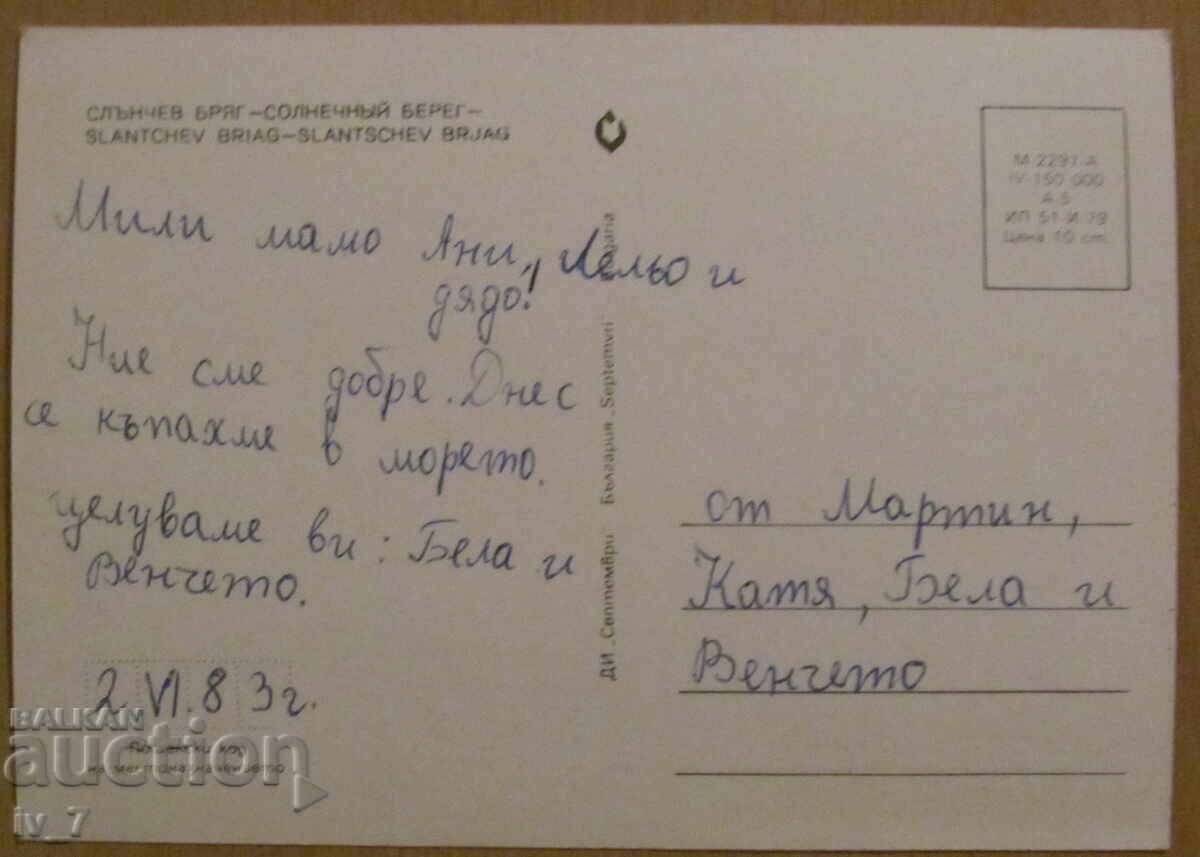 СЛЪНЧЕВ БРЯГ—СОЛНЕЧНЫЙ БЕРЕГ—
SLANTCHEV BRIAG—SLANTSCHEV BRJAG
Мили мамо Ани, Лельо и
дядо!
Ние сме добре. Днес
се къпахме в морето.
целуваме ви: Бела и
Венчето.
2.VI.83г.
Пощенски код
на местоназначението
ДИ „Септември" България „Septemvri"
М 2297-А
IV-150 000
А 5
ИП 51-И 79
Цена 10 ст.
от Мартин,
Катя, Бела и
Венчето
BALKAN
auction
iv_7